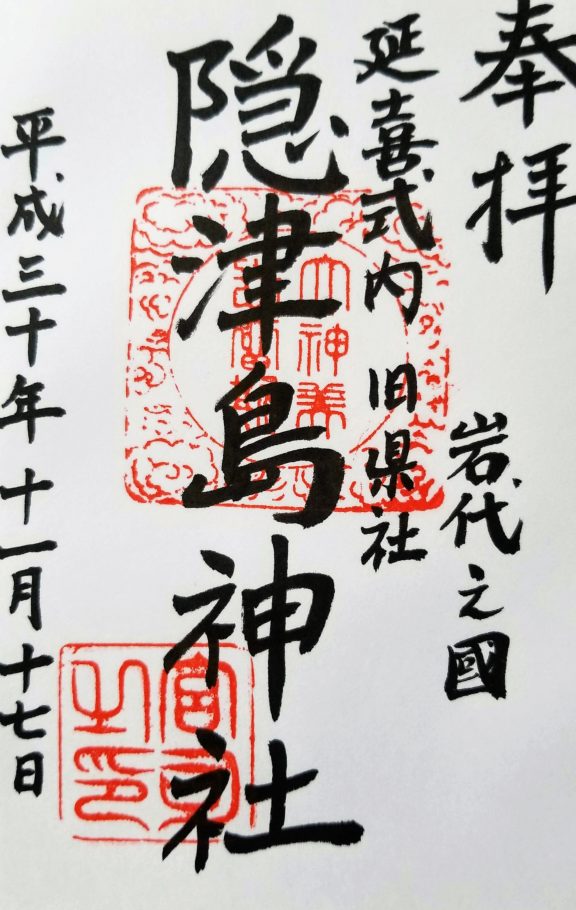 奉拝
岩代之國
延喜式内 旧県社
隠津島神社
平成三十年十一月十七日
宮司之印